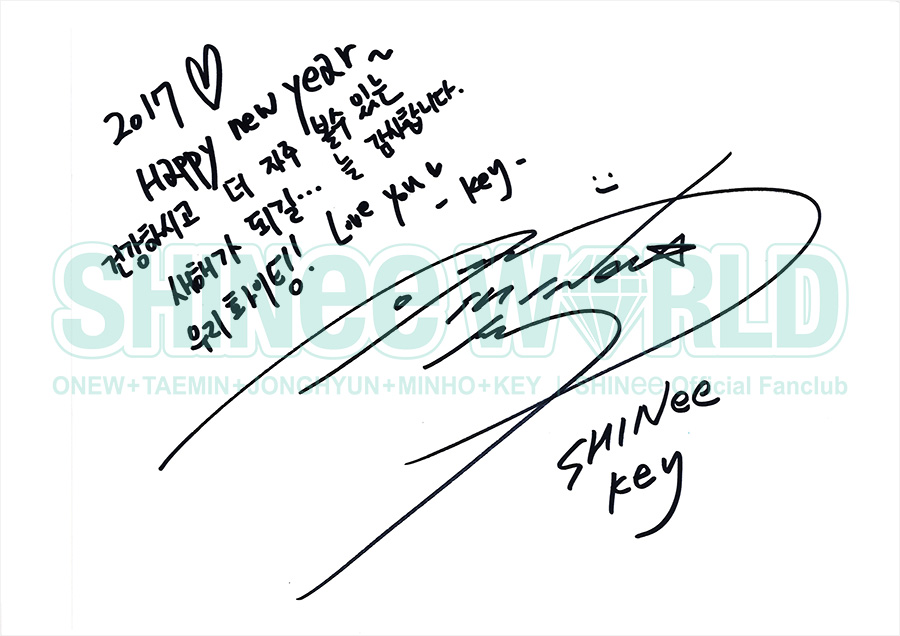 2017 ♡
Happy new year~
건강하시고 더 자주 볼수 있는
새해가 되길... 늘 감사합니다.
우리 화이팅!! Love you♥ - key -
SHINee WORLD
ONEW+TAEMIN+JONGHYUN+MINHO+KEY | SHINee Official Fanclub
SHINee
key